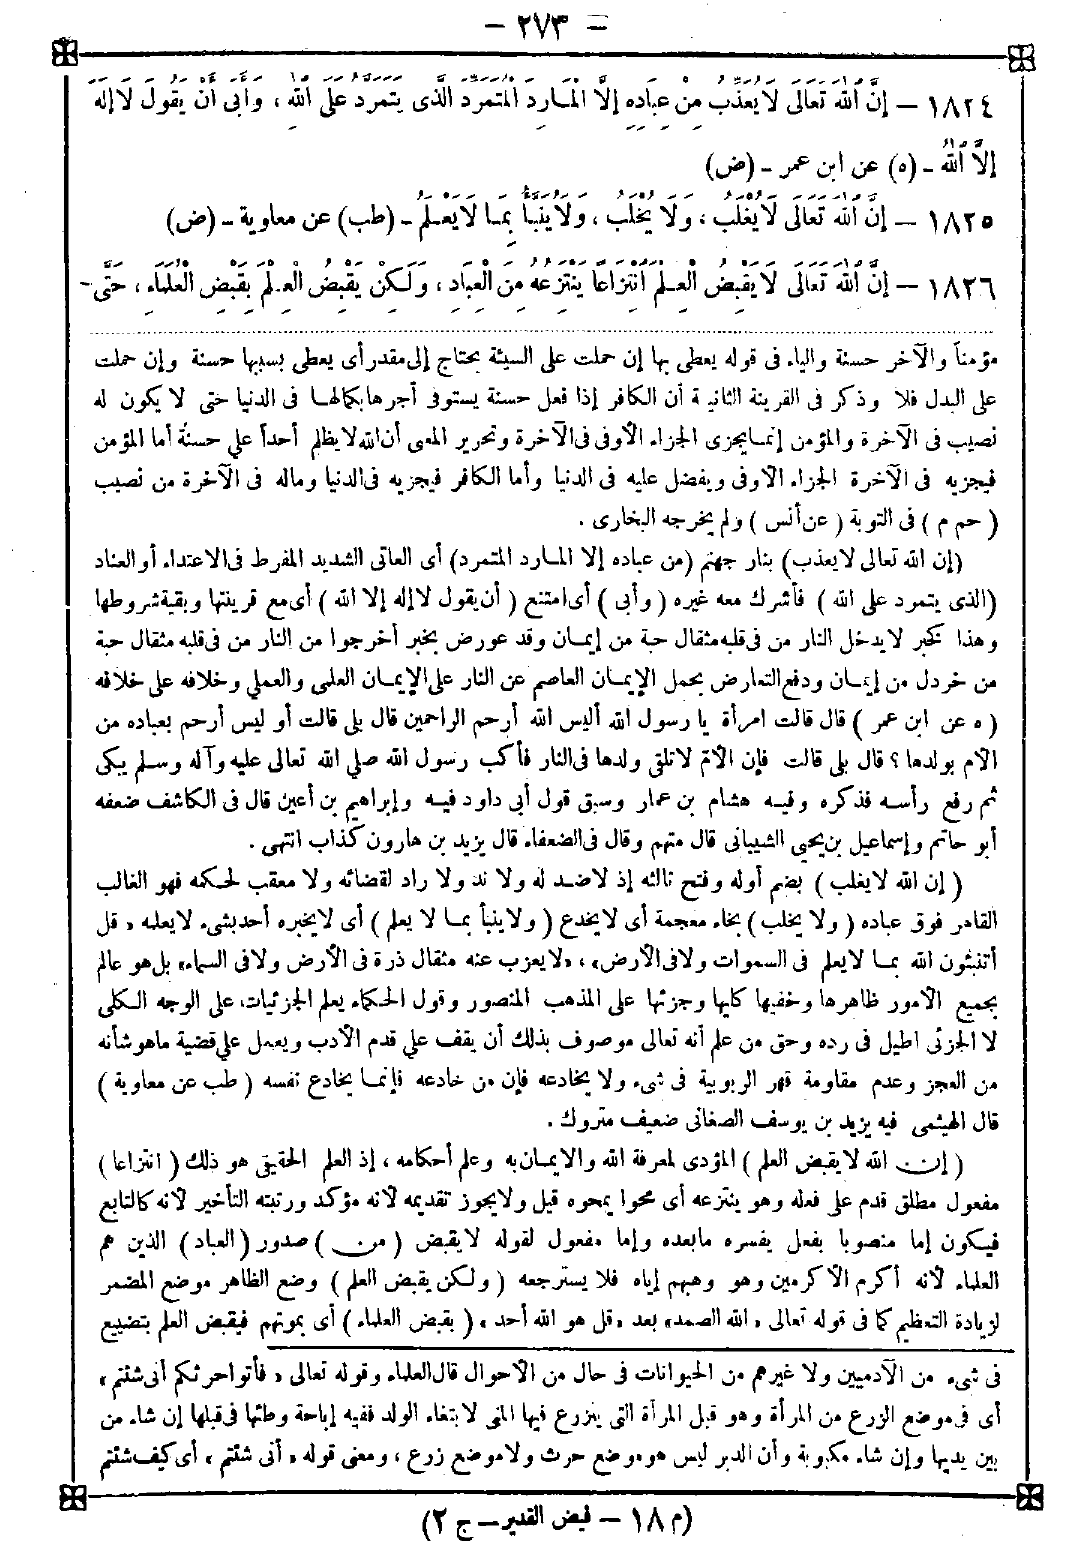 — ٢٧٣ —
١٨٢٤ — إِنَّ اللهَ تَعَالَى لَا يُعَذِّبُ مِنْ عِبَادِهِ إِلَّا الْمَارِدَ الْمُتَمَرِّدَ الَّذِى يَتَمَرَّدُ عَلَى اللهِ ، وَأَبَى أَنْ يَقُولَ لَا إِلَهَ
إِلَّا اللهُ ـ (ه) عن ابن عمر ـ (ض)
١٨٢٥ — إِنَّ اللهَ تَعَالَى لَا يُغْلَبُ ، وَلَا يُخْلَبُ ، وَلَا يُنَبَّأُ بِمَا لَا يَعْلَمُ ـ (طب) عن معاوية ـ (ض)
١٨٢٦ — إِنَّ اللهَ تَعَالَى لَا يَقْبِضُ الْعِلْمَ انْتِزَاعًا يَنْتَزِعُهُ مِنَ الْعِبَادِ ، وَلَكِنْ يَقْبِضُ الْعِلْمَ بِقَبْضِ الْعُلَمَاءِ ، حَتَّى
مؤمناً والآخر حسنة والباء فى قوله يعطى بها إن حملت على السيئة يحتاج إلى مقدر أى يعطى بسببها حسنة وإن حملت
على البدل فلا وذكر فى القرينة الثانية أن الكافر إذا فعل حسنة يستوفى أجرها بكمالها فى الدنيا حتى لا يكون له
نصيب فى الآخرة والمؤمن إنما يجزى الجزاء الأوفى فى الآخرة وتحرير المعنى أن الله لا يظلم أحداً على حسنة أما المؤمن
فيجزيه فى الآخرة الجزاء الأوفى ويفضل عليه فى الدنيا وأما الكافر فيجزيه فى الدنيا وماله فى الآخرة من نصيب
( حم م ) فى التوبة ( عن أنس ) ولم يخرجه البخارى .
(إن الله تعالى لا يعذب) بنار جهنم (من عباده إلا المارد المتمرد) أى العاتى الشديد المفرط فى الاعتداء أو العناد
(الذى يتمرد على الله ) فأشرك معه غيره ( وأبى ) أى امتنع ( أن يقول لا إله إلا الله ) أى مع قرينتها وبقية شروطها
وهذا كخبر لا يدخل النار من فى قلبه مثقال حبة من إيمان وقد عورض بخبر أخرجوا من النار من فى قلبه مثقال حبة
من خردل من إيمان ودفع التعارض بحمل الإيمان العاصم عن النار على الإيمان العلمى والعملى وخلافه على خلافه
( ه عن ابن عمر ) قال قالت امرأة يا رسول الله أليس الله أرحم الراحمين قال بلى قالت أو ليس أرحم بعباده من
الأم بولدها ؟ قال بلى قالت فإن الأم لا تلقى ولدها فى النار فأكب رسول الله صلى الله تعالى عليه وآله وسلم يبكى
ثم رفع رأسه فذكره وفيه هشام بن عمار وسبق قول أبى داود فيه وإبراهيم بن أعين قال فى الكاشف ضعفه
أبو حاتم وإسماعيل بن يحيى الشيبانى قال متهم وقال فى الضعفاء قال يزيد بن هارون كذاب انتهى .
( إن الله لا يغلب ) بضم أوله وفتح ثالثه إذ لا ضد له ولا ند ولا راد لقضائه ولا معقب لحكمه فهو الغالب
القاهر فوق عباده ( ولا يخلب ) بخاء معجمة أى لا يخدع ( ولا ينبأ بما لا يعلم ) أى لا يخبره أحد بشىء لا يعلمه « قل
أتنبئون الله بما لا يعلم فى السموات ولا فى الأرض» ، «لا يعزب عنه مثقال ذرة فى الأرض ولا فى السماء» بل هو عالم
بجميع الأمور ظاهرها وخفيها كليها وجزئها على المذهب المنصور وقول الحكماء يعلم الجزئيات على الوجه الكلى
لا الجزئى اطيل فى رده وحق من علم أنه تعالى موصوف بذلك أن يقف على قدم الأدب ويعمل على قضية ما هو شأنه
من العجز وعدم مقاومة قهر الربوبية فى شىء ولا يخادعه فإن من خادعه فإنما يخادع نفسه ( طب عن معاوية )
قال الهيثمى فيه يزيد بن يوسف الصغانى ضعيف متروك .
( إن الله لا يقبض العلم ) المؤدى لمعرفة الله والايمان به وعلم أحكامه ، إذ العلم الحقيقى هو ذلك ( انتزاعا )
مفعول مطلق قدم على فعله وهو ينتزعه أى محوا يمحوه قيل ولا يجوز تقديمه لأنه مؤكد ورتبته التأخير لأنه كالتابع
فيكون إما منصوبا بفعل يفسره ما بعده وإما مفعول لقوله لا يقبض ( من ) صدور ( العباد ) الذين هم
العلماء لأنه أكرم الأكرمين وهو وهبهم إياه فلا يسترجعه ( ولكن يقبض العلم ) وضع الظاهر موضع المضمر
لزيادة التعظيم كما فى قوله تعالى « الله الصمد» بعد «قل هو الله أحد » ( بقبض العلماء ) أى بموتهم فيقبض العلم بتضييع
فى شىء من الآدميين ولا غيرهم من الحيوانات فى حال من الأحوال قال العلماء وقوله تعالى « فأتوا حرثكم أنى شئتم »
أى فى موضع الزرع من المرأة وهو قبل المرأة التى ينزرع فيها المنى لابتغاء الولد ففيه إباحة وطئها فى قبلها إن شاء من
بين يديها وإن شاء مكبوبة وأن الدبر ليس هو موضع حرث ولا موضع زرع ، ومعنى قوله « أنى شئتم » أى كيف شئتم
(م ١٨ — فيض القدير — ج ٢)